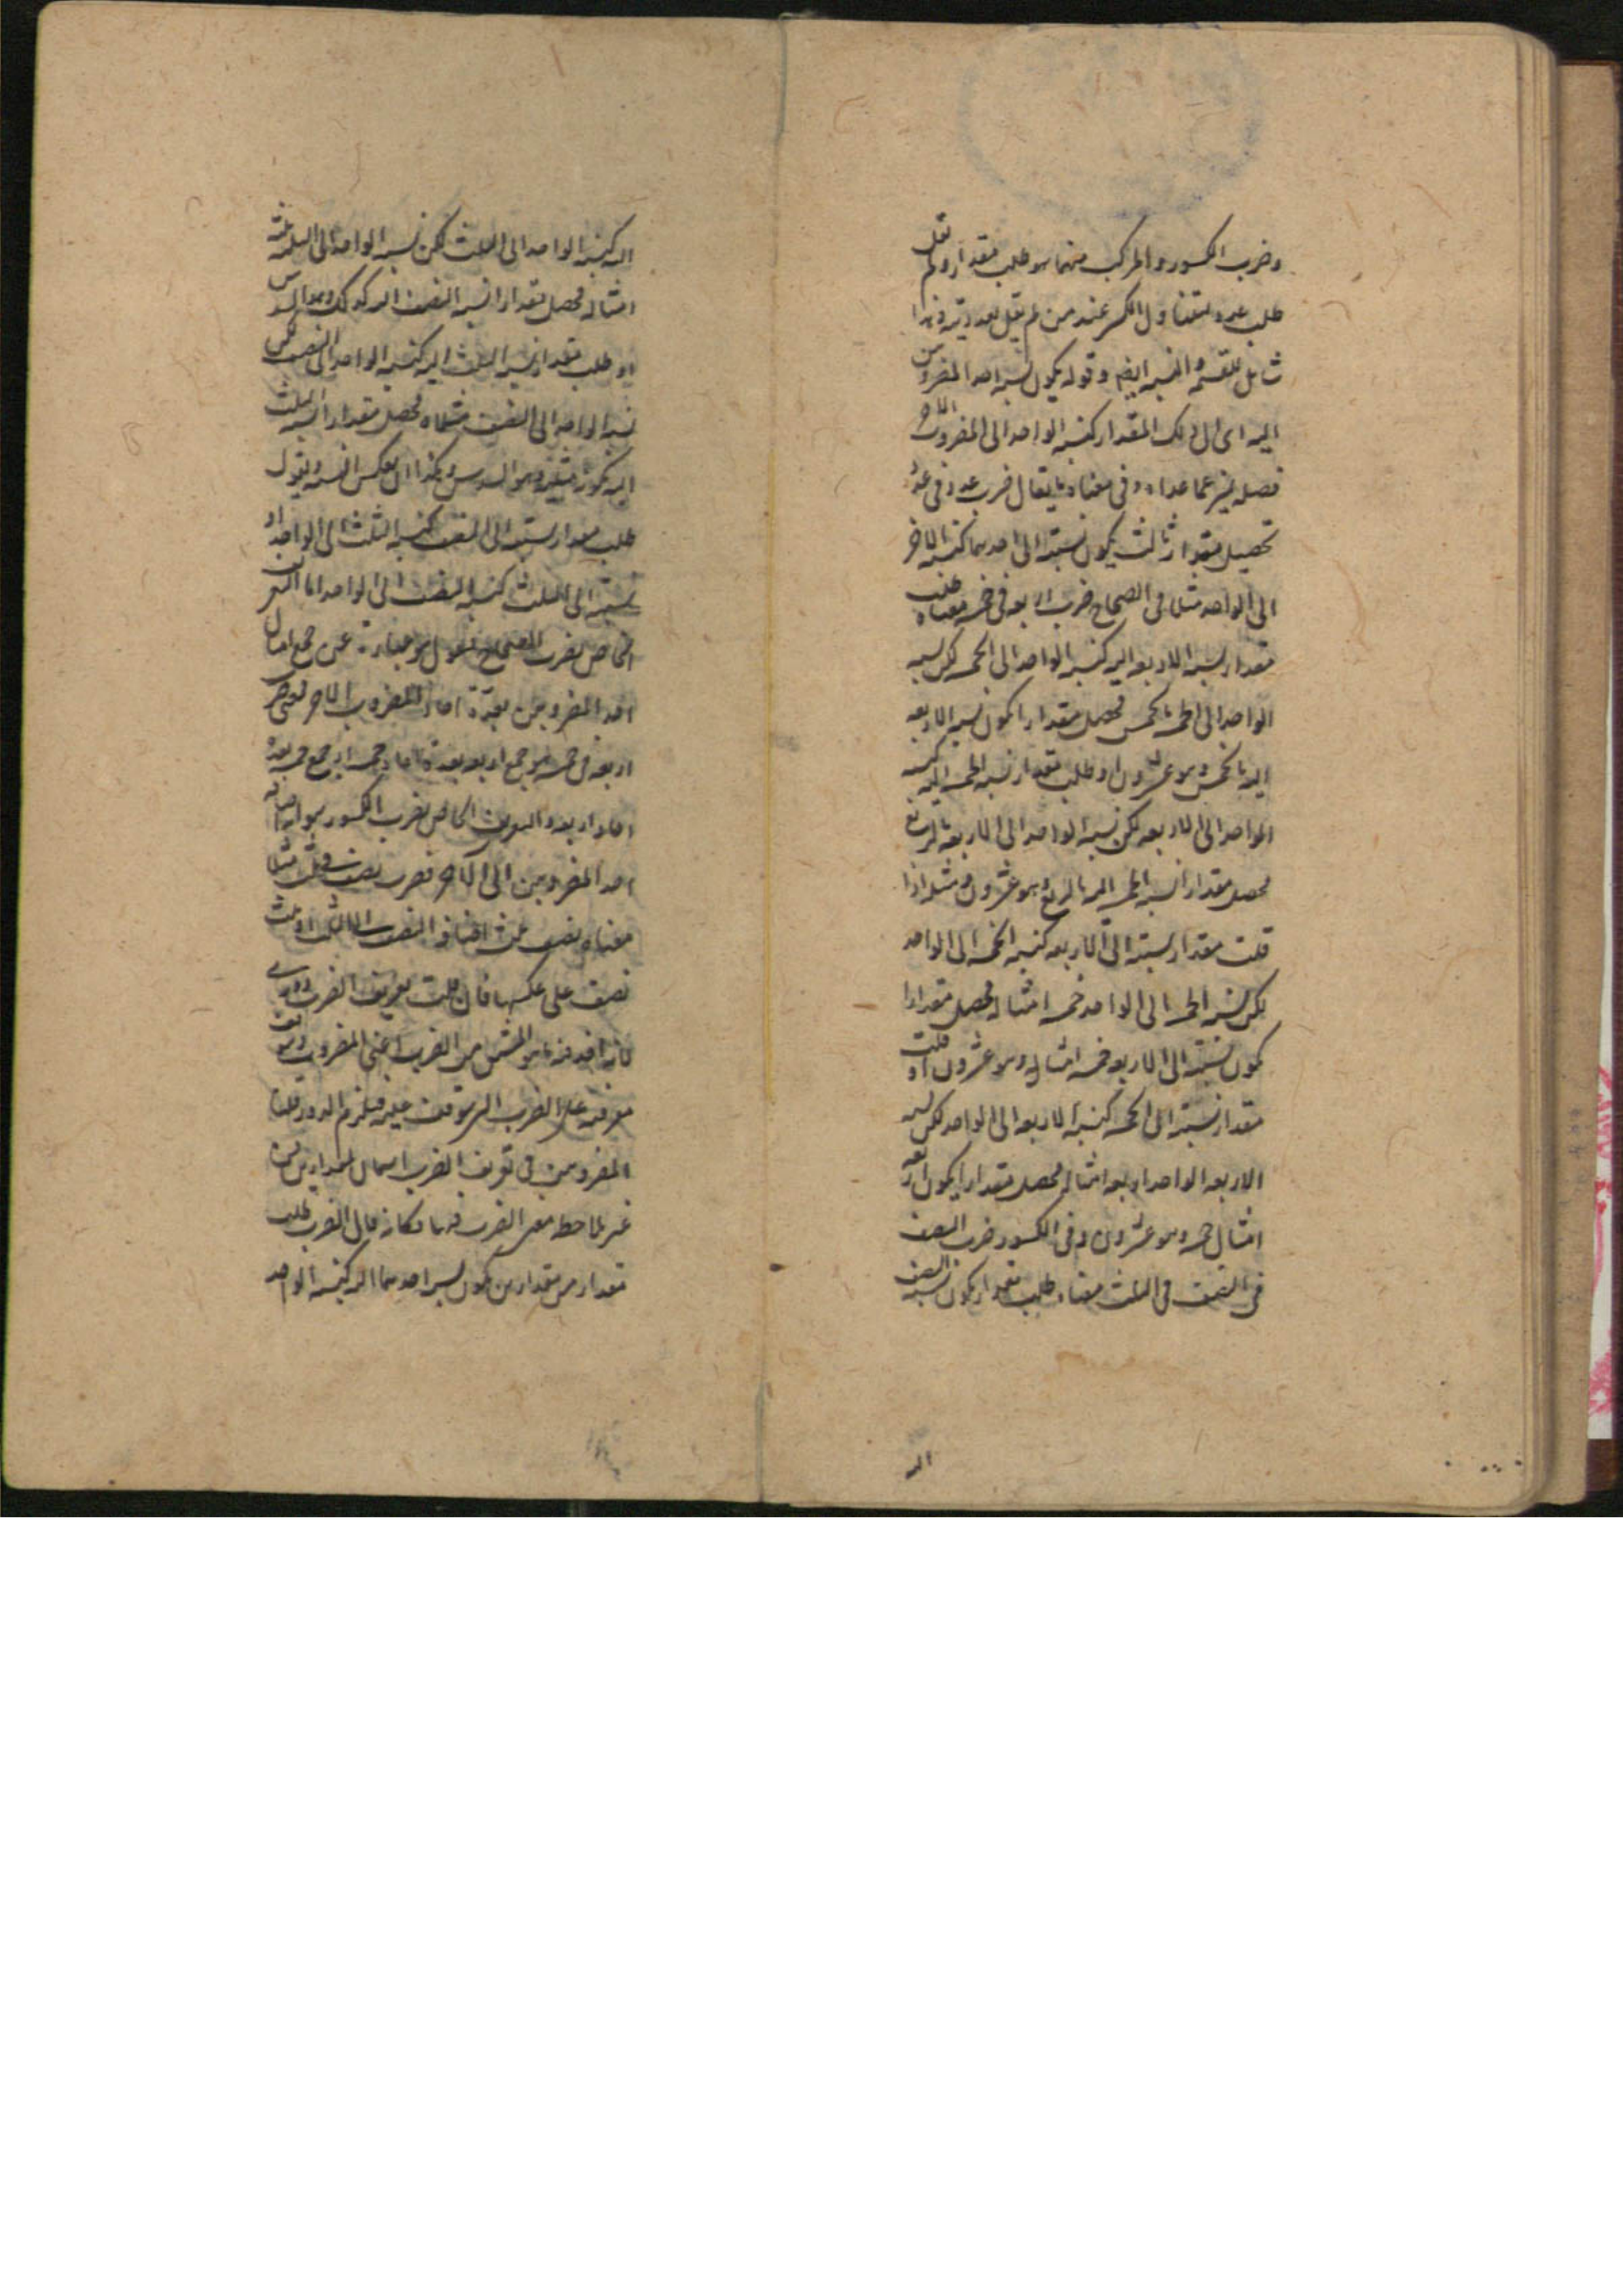 وضرب الكسور والمركب منهما هو طلب مقدار ولم نقل
طلب عدد ليتناول الكسر عند من لم يقل بعدديته وهذا
شامل للقسمة والنسبة ايضا وقوله يكون نسبة احد المضروبين
اليه اى الى ذلك المقدار كنسبة الواحد الى المضروب الاخر
فصله يميز عما عداه وفى معناه ما يقال ضرب عدد فى عدد
تحصيل مقدار ثالث يكون نسبته الى احدهما كنسبة الاخر
الى الواحد مثلا فى الصحاح ضرب اربعه فى خمسه معناه طلب
مقدار نسبة الاربعه اليه كنسبة الواحد الى الخمسه لكن نسبة
الواحد الى الخمسه بالخمس فحصل مقدارا يكون نسبة الاربعه
اليه بالخمس وهو عشرون او طلب مقدار نسبة الخمسه اليه كنسبة
الواحد الى الاربعه لكن نسبة الواحد الى الاربعه بالربع
فحصل مقدارا نسبة الخمسه اليه بالربع وهو عشرون ومثله اذا
قلت مقدار نسبته الى الاربعه كنسبة الخمسه الى الواحد
لكن نسبة الخمسه الى الواحد خمسه امثاله فحصل مقدارا
يكون نسبته الى الاربعه خمسه امثال وهو عشرون او قلت
مقدار نسبته الى الخمسه كنسبة الاربعه الى الواحد لكن نسبة
الاربعه الواحد اربعه امثاله فحصل مقدارا يكون اربعه
امثال خمسه وهو عشرون وفى الكسور ضرب النصف
فى النصف فى الثلث معناه طلب مقدار يكون نسبة النصف
اليه
اليه كنسبة الواحد الى الثلث لكن نسبة الواحد الى الثلث ثلثه
امثاله فحصل مقدارا نسبة النصف اليه كذلك وهو السدس
او طلب مقدار نسبة الثلث اليه كنسبة الواحد الى النصف لكن
نسبة الواحد الى النصف مثلاه فحصل مقدارا نسبة الثلث
اليه بكونه مثليه وهو السدس وهكذا ان تعكس النسبه وتقول
طلب مقدار نسبته الى النصف كنسبة الثلث الى الواحد او
نسبته الى الثلث كنسبة النصف الى الواحد اما التعريف
الخاص بضرب الصحاح فنقول هو عبارة عن جمع امثال
احد المضروبين بعدة احاد المضروب الاخر فمعنى ضرب
اربعه فى خمسه هو جمع اربعه بعدة احاد خمسه او جمع خمسه بعدة
احاد اربعه والتعريف الخاص بضرب الكسور هو اضافة
احد المضروبين الى الاخر فضرب نصف فى ثلث مثلا
معناه نصف ثلث اضافة النصف الى الثلث او ثلث
نصف على عكسها فان قلت تعريف الضرب دورى
لانه اخذ فيه ما هو المشتق من الضرب اعنى المضروب وتتوقف
معرفته على الضرب المتوقف عليه فيلزم الدور قلنا
المضروبين فى تعريف الضرب اسمان لمقدارين من
غير ملاحظة معنى الضرب فيهما فكانه قال الضرب طلب
مقدار من مقدارين يكون نسبة احدهما اليه كنسبة الواحد